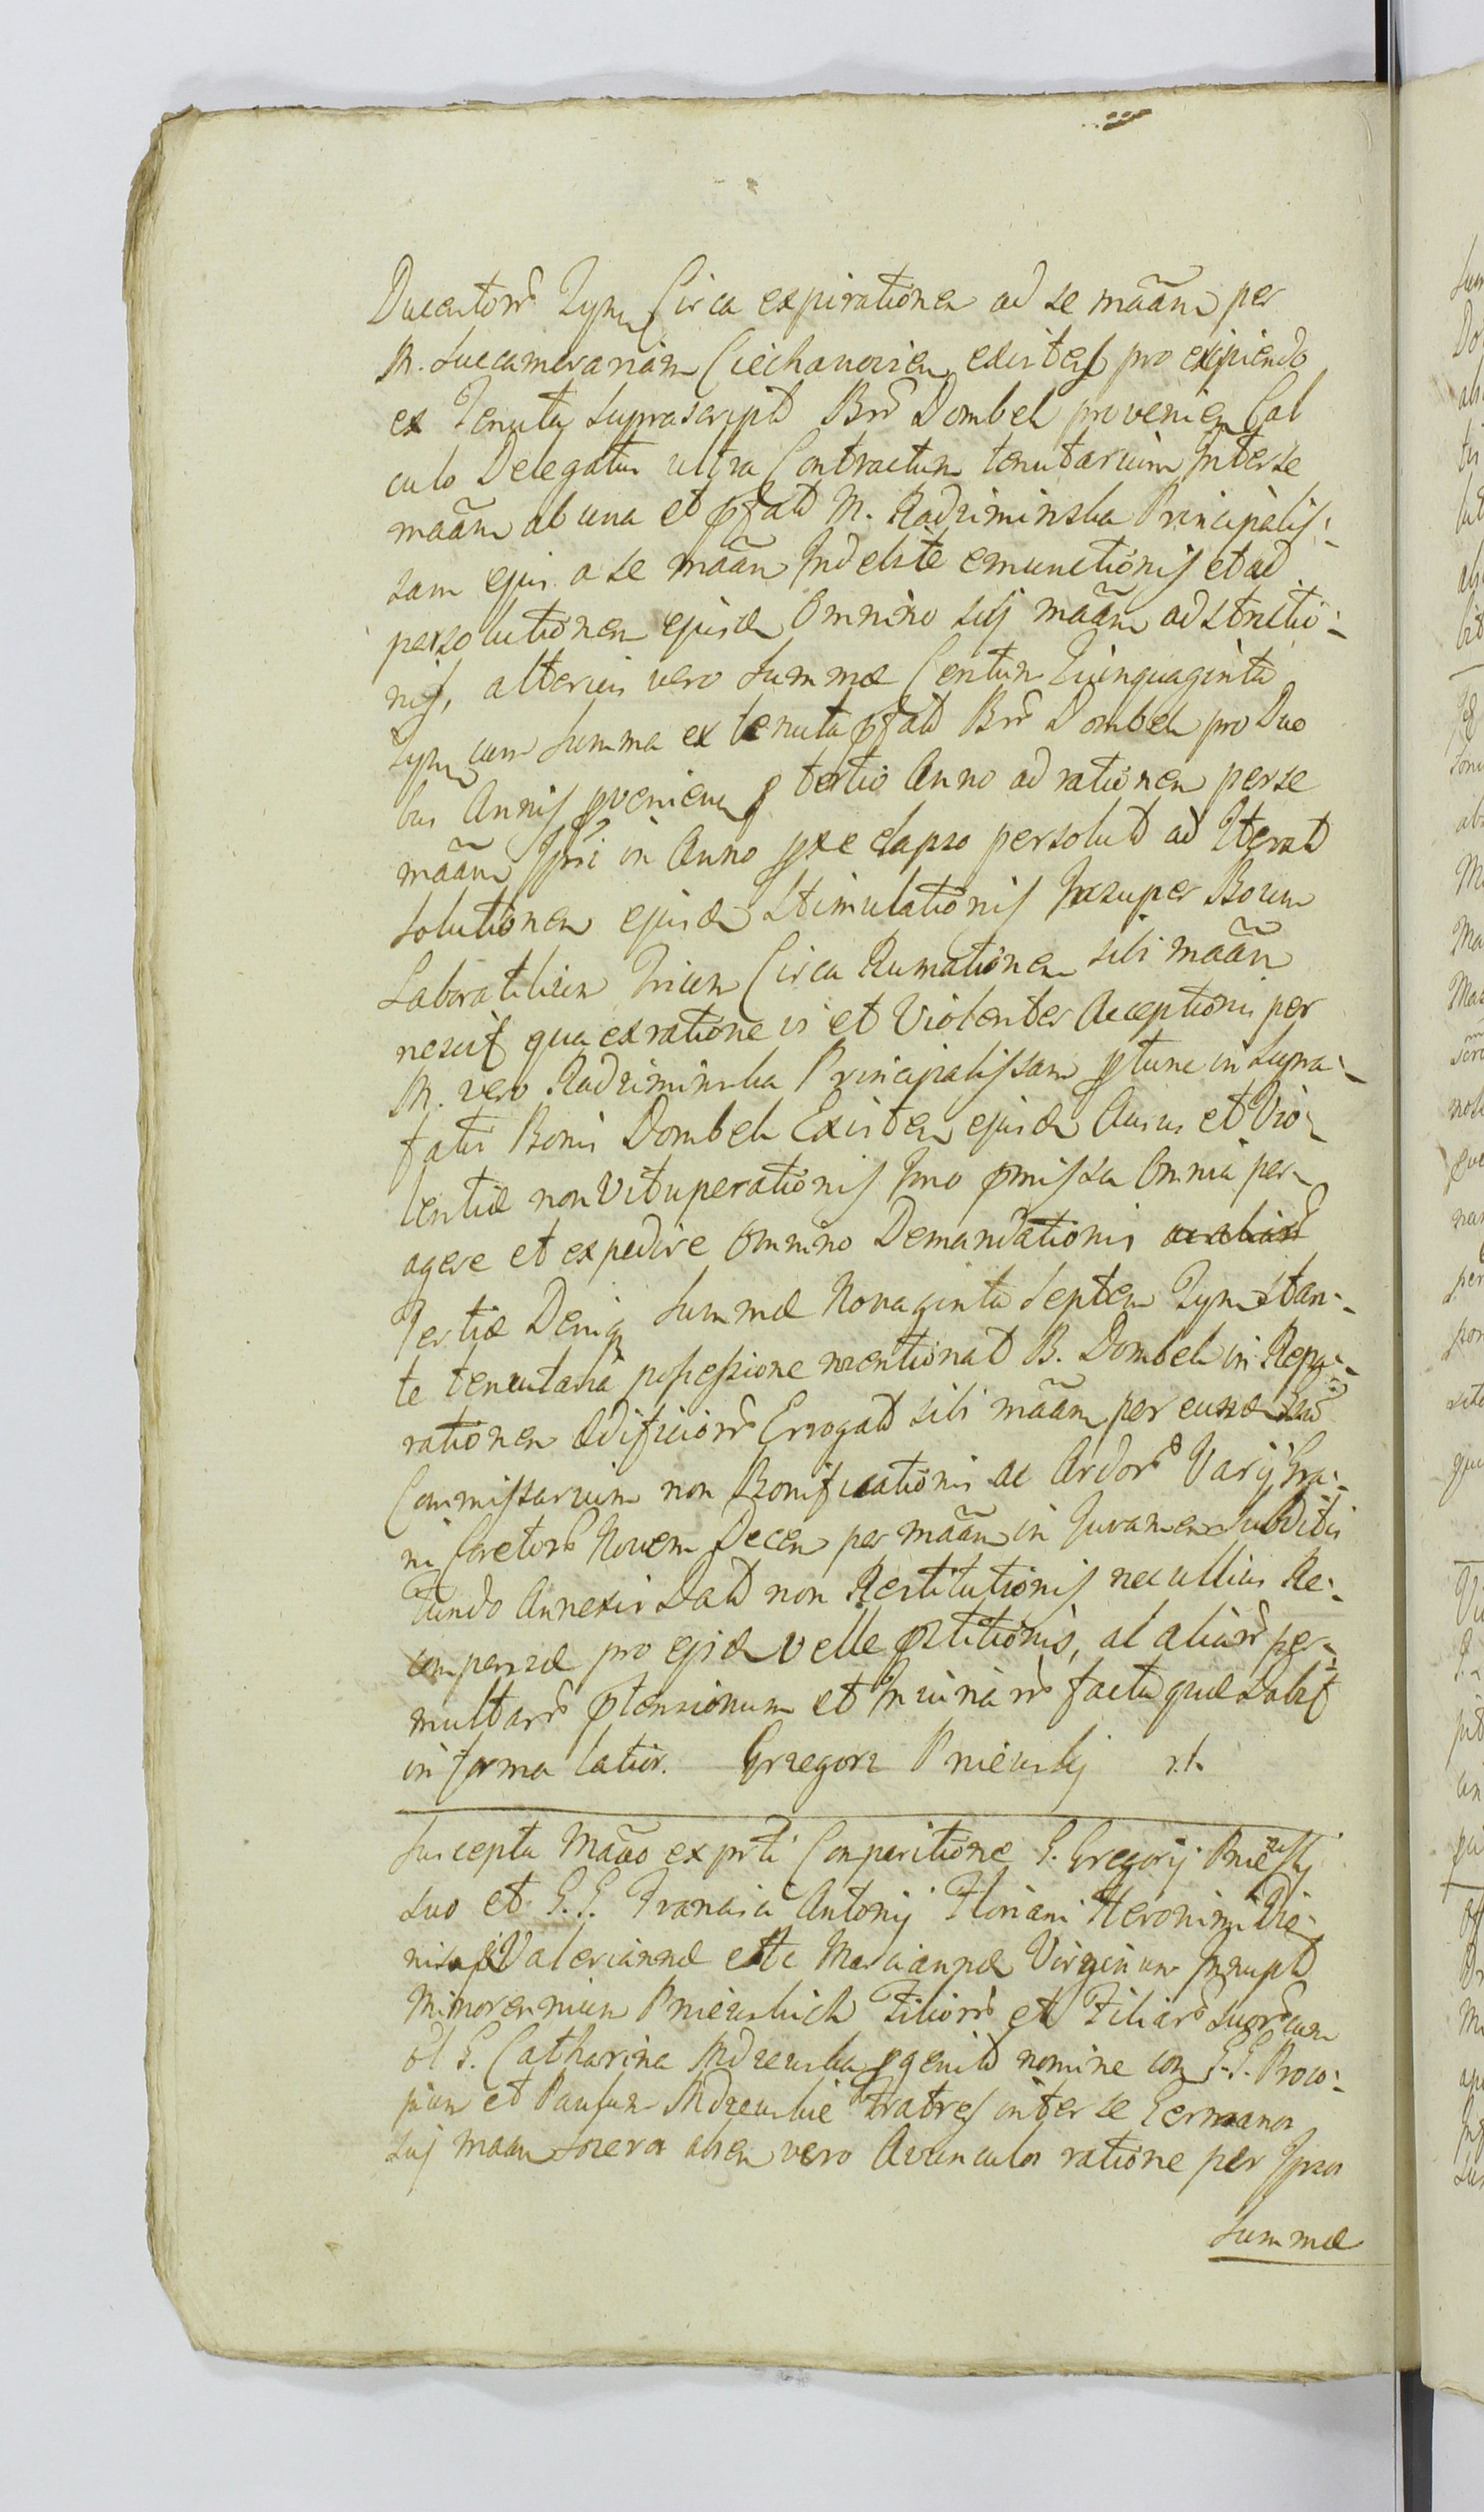 Ducentorũ Tynf Circa expirationem ad se mããm per
M. Succamerariam Ciechanovien existen pro excipiendo
ex Tenuta suprascript Brũ Dombek provenien Cal
culo Delegatum ultra Contractum tenutarium Inter se
mããm ab una et pfatã M. Radziminska Principalis-
sam ejus a se mããm Indebite emunctionis et ad
persolutionem ejusdem Omnino suj mããm adstrictio-
nis, alterius vero Summæ Centum Quinquaginta
Tynf cum Summa ex tenuta pfatã Brũ Dombek pro Duo
bus Annis pvenien p tertio Anno ad rationem per se
mããm Ipsi in Anno pxe elapso persolut ad Iterat
solutionem ejusdem Stimulationis Insuper Boum
Laboratilium Trium Circa Rumationem sibi mããm
nescit qua ex ratione vi et Violenter Acceptionis per
M. vero Radziminska Principalissam ptunc in supra-
fatis Bonis Dombek Existen ejusdem Ausus et Vio-
lentiæ non Vituperationis Imo pmissa Omnia per-
agere et expedire Omnino Demandationis
Tertiæ Deniq Summæ Nonaginta Septem Tynf stan-
te tenutaria possessione mentionat B. Dombek in Repa-
rationem Ædificiorũ Erogat sibi mããm per eundem suũ
Commissarium non Bonificationis ac Ordorũ Varij Gra-
ni Coretorũ Novem Decem per mããm in Juvamen Subditis
Fundo Annexis Dat non Restitutionis nec ullius Re-
compensæ pro ejsdem velle pstitionis, al aliarũ per-
multarũ ptensionum et Iniuriarũ factaque Dabit
in forma latior. Grzegorz Pniewskj r.l.
Suscepta Mããõ ex prti Comparitione G. Gregorij Pniewskj
suo et G.G. Francisci Antonij Floriani Heronimi Die-
nisij Valeriannæ et Mariannæ Virginum Innupt
Minorennium Pniewskich Filiorũ et Filiarũ Suorũ cum
ol G. Catharina Mdzewska pgenit nomine con G.G. Proco-
pium et Paulum Mdzewskie Fratres inter se Germanos
suj mããm Soceros aliem vero Avunculos ratione per Ipsos
Summæ